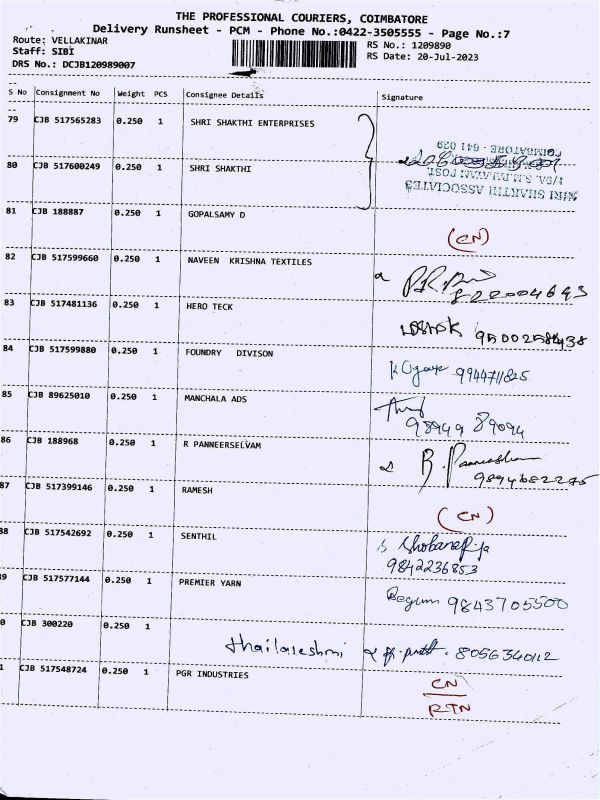 THE PROFESSIONAL COURIERS, COIMBATORE
Delivery Runsheet - PCM - Phone No.:0422-3505555 - Page No.:7
Route: VELLAKINAR
RS No.: 1209890
Staff: SIBI
RS Date: 20-Jul-2023
DRS No.: DCJB120989007
S No Consignment No Weight PCS Consignee Details Signature
79 CJB 517565283 0.250 1 SHRI SHAKTHI ENTERPRISES
COIMBATORE - 641 029
80 CJB 517600249 0.250 1 SHRI SHAKTHI
SHRI SHAKTHI ASSOCIATES
81 CJB 188887 0.250 1 GOPALSAMY D
(CN)
82 CJB 517599660 0.250 1 NAVEEN KRISHNA TEXTILES
83 CJB 517481136 0.250 1 HERO TECK
84 CJB 517599880 0.250 1 FOUNDRY DIVISON
9944711825
85 CJB 89625010 0.250 1 MANCHALA ADS
98949 89094
86 CJB 188968 0.250 1 R PANNEERSELVAM
87 CJB 517399146 0.250 1 RAMESH
(CN)
88 CJB 517542692 0.250 1 SENTHIL
9842236853
89 CJB 517577144 0.250 1 PREMIER YARN
Begum 9843705500
0 CJB 300220 0.250 1
8056340112
1 CJB 517548724 0.250 1 PGR INDUSTRIES
CN
RTN